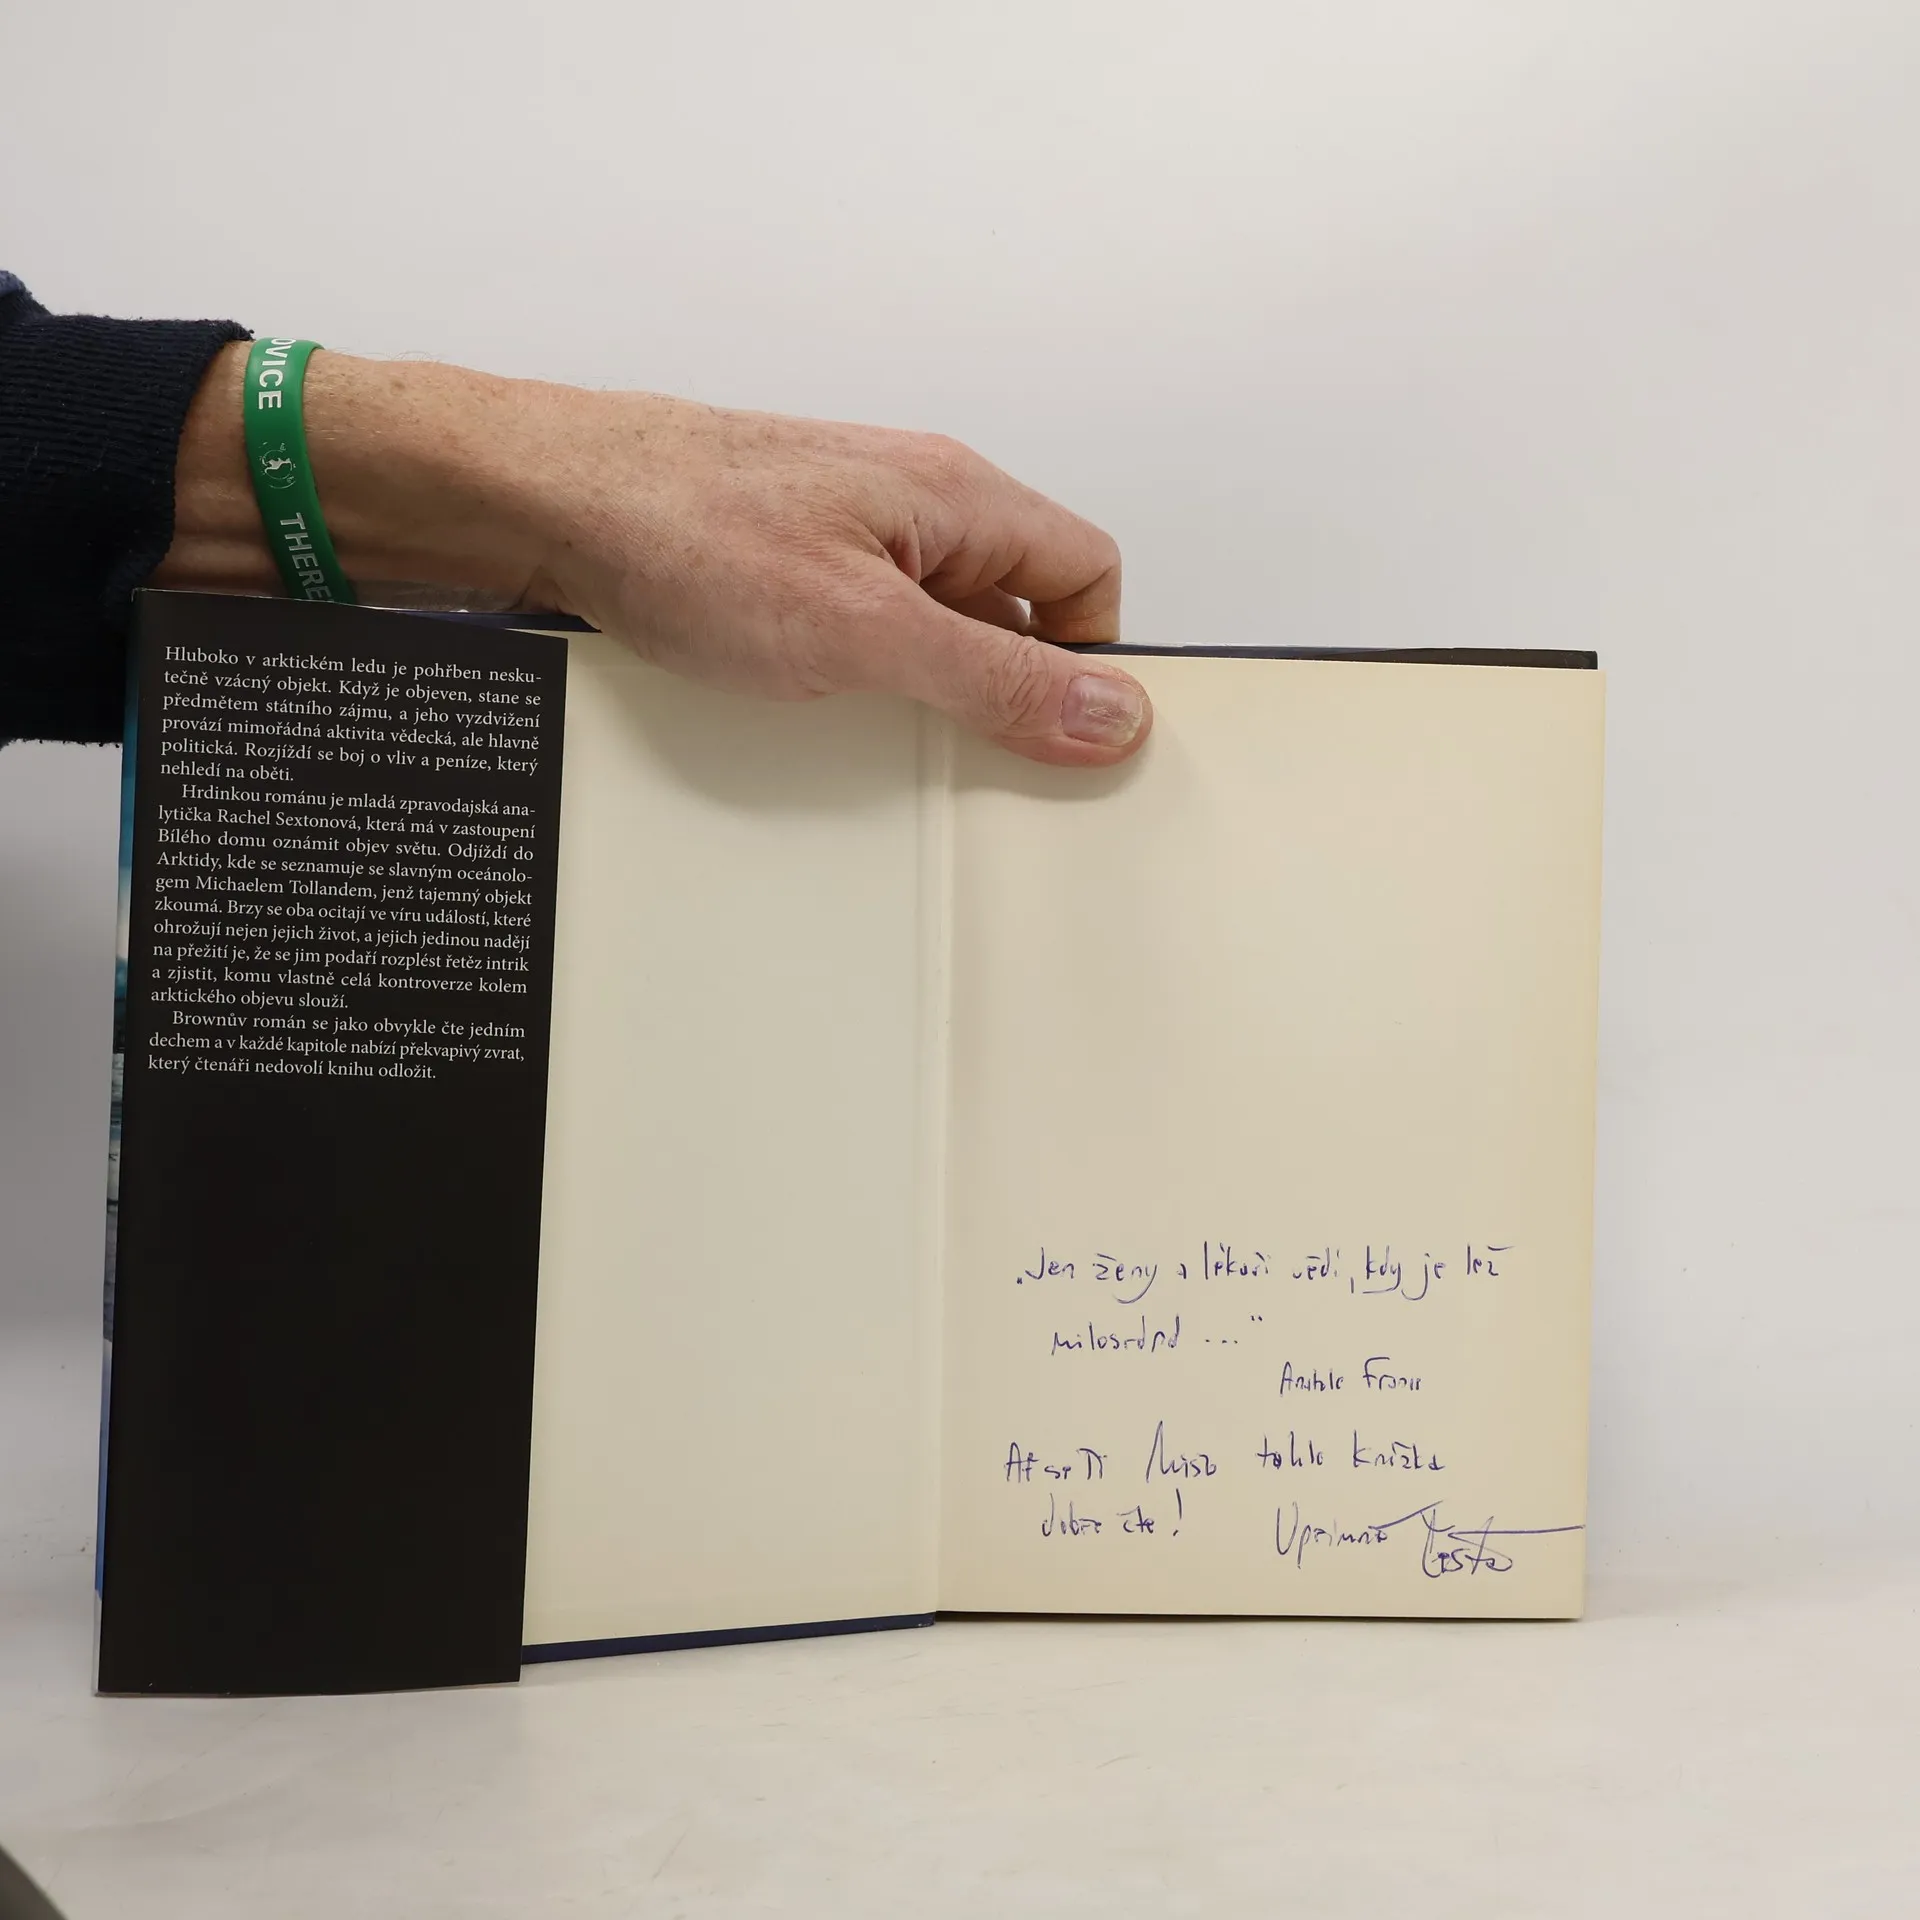 OVICE
THERE
Hluboko v arktickém ledu je pohřben nesku-
tečně vzácný objekt. Když je objeven, stane se
předmětem státního zájmu, a jeho vyzdvižení
provází mimořádná aktivita vědecká, ale hlavně
politická. Rozjíždí se boj o vliv a peníze, který
nehledí na oběti.
Hrdinkou románu je mladá zpravodajská ana-
lytička Rachel Sextonová, která má v zastoupení
Bílého domu oznámit objev světu. Odjíždí do
Arktidy, kde se seznamuje se slavným oceánolo-
gem Michaelem Tollandem, jenž tajemný objekt
zkoumá. Brzy se oba ocitají ve víru událostí, které
ohrožují nejen jejich život, a jejich jedinou nadějí
na přežití je, že se jim podaří rozplést řetěz intrik
a zjistit, komu vlastně celá kontroverze kolem
arktického objevu slouží.
Brownův román se jako obvykle čte jedním
dechem a v každé kapitole nabízí překvapivý zvrat,
který čtenáři nedovolí knihu odložit.
„Jen ženy a lékaři vědí, kdy je lež
milosrdná ..."
Anatole France
Ať se Ti tahle knížka
dobře čte!
Upřímně